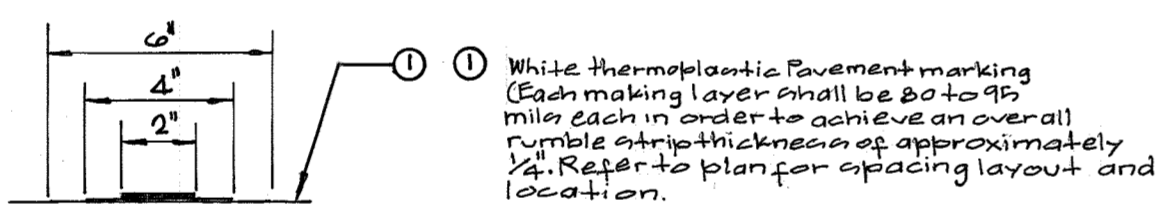 6"
4"
2"
1
1
White thermoplastic Pavement marking
(Each making layer shall be 80 to 95
mils each in order to achieve an overall
rumble strip thickness of approximately
1/4". Refer to plan for spacing layout and
location.